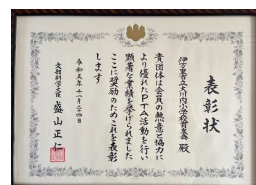 表彰状
伊万里市立大川内小学校育友会 殿
貴団体は会員の熱意と協力に
より優れたPTA活動を行い
顕著な業績を挙げられました
ここに奨励のためこれを表彰
します
令和五年十一月二十四日
文部科学大臣 盛山正仁